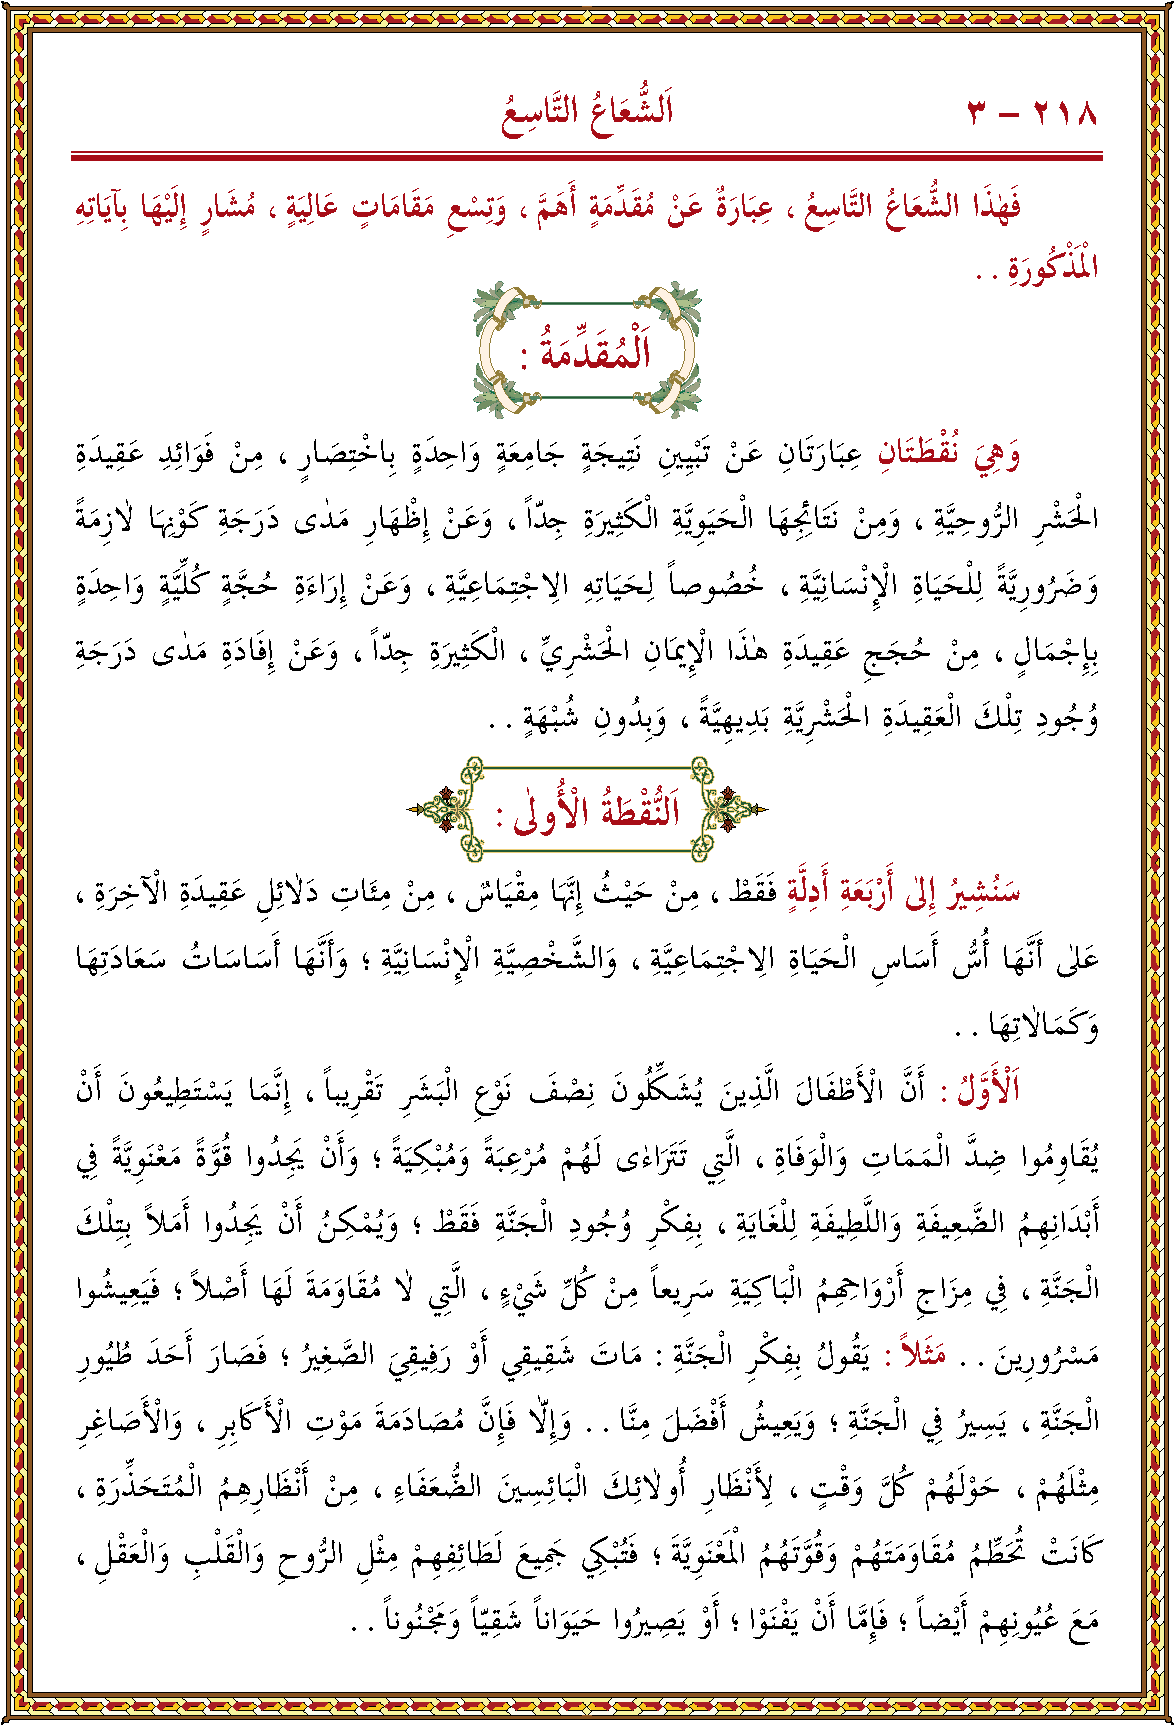 ٢١٨ – ٣ اَلشُّعَاعُ التَّاسِعُ
فَهٰذَا الشُّعَاعُ التَّاسِعُ ، عِبَارَةٌ عَنْ مُقَدِّمَةٍ أَهَمَّ ، وَتِسْعِ مَقَامَاتٍ عَالِيَةٍ ، مُشَارٍ إِلَيْهَا بِآيَاتِهِ
الْمَذْكُورَةِ . .
اَلْمُقَدِّمَةُ :
وَهِيَ نُقْطَتَانِ عِبَارَتَانِ عَنْ تَبْيِينِ نَتِيجَةٍ جَامِعَةٍ وَاحِدَةٍ بِاخْتِصَارٍ ، مِنْ فَوَائِدِ عَقِيدَةِ
الْحَشْرِ الرُّوحِيَّةِ ، وَمِنْ نَتَائِجِهَا الْحَيَوِيَّةِ الْكَثِيرَةِ جِدّاً ، وَعَنْ إِظْهَارِ مَدٰى دَرَجَةِ كَوْنِهَا لاٰزِمَةً
وَضَرُورِيَّةً لِلْحَيَاةِ الْإِنْسَانِيَّةِ ، خُصُوصاً لِحَيَاتِهِ الاِجْتِمَاعِيَّةِ ، وَعَنْ إِرَاءَةِ حُجَّةٍ كُلِّيَّةٍ وَاحِدَةٍ
بِإِجْمَالٍ ، مِنْ حُجَجِ عَقِيدَةِ هٰذَا الْإِيمَانِ الْحَشْرِيِّ ، الْكَثِيرَةِ جِدّاً ، وَعَنْ إِفَادَةِ مَدٰى دَرَجَةِ
وُجُودِ تِلْكَ الْعَقِيدَةِ الْحَشْرِيَّةِ بَدِيهِيَّةً ، وَبِدُونِ شُبْهَةٍ . .
اَلنُّقْطَةُ الْأُولٰى :
سَنُشِيرُ إِلٰى أَرْبَعَةِ أَدِلَّةٍ فَقَطْ ، مِنْ حَيْثُ إِنَّهَا مِقْيَاسٌ ، مِنْ مِئَاتِ دَلاٰئِلِ عَقِيدَةِ الْآخِرَةِ ،
عَلٰى أَنَّهَا أُسُّ أَسَاسِ الْحَيَاةِ الاِجْتِمَاعِيَّةِ ، وَالشَّخْصِيَّةِ الْإِنْسَانِيَّةِ ؛ وَأَنَّهَا أَسَاسَاتُ سَعَادَتِهَا
وَكَمَالاٰتِهَا . .
اَلْأَوَّلُ : أَنَّ الْأَطْفَالَ الَّذِينَ يُشَكِّلُونَ نِصْفَ نَوْعِ الْبَشَرِ تَقْرِيباً ، إِنَّمَا يَسْتَطِيعُونَ أَنْ
يُقَاوِمُوا ضِدَّ الْمَمَاتِ وَالْوَفَاةِ ، الَّتِي تَتَرَاءٰى لَهُمْ مُرْعِبَةً وَمُبْكِيَةً ؛ وَأَنْ يَجِدُوا قُوَّةً مَعْنَوِيَّةً فِي
أَبْدَانِهِمُ الضَّعِيفَةِ وَاللَّطِيفَةِ لِلْغَايَةِ ، بِفِكْرِ وُجُودِ الْجَنَّةِ فَقَطْ ؛ وَيُمْكِنُ أَنْ يَجِدُوا أَمَلاً بِتِلْكَ
الْجَنَّةِ ، فِي مِزَاجِ أَرْوَاحِهِمُ الْبَاكِيَةِ سَرِيعاً مِنْ كُلِّ شَيْءٍ ، الَّتِي لاٰ مُقَاوَمَةَ لَهَا أَصْلاً ؛ فَيَعِيشُوا
مَسْرُورِينَ . . مَثَلاً : يَقُولُ بِفِكْرِ الْجَنَّةِ : مَاتَ شَقِيقِي أَوْ رَفِيقِيَ الصَّغِيرُ ؛ فَصَارَ أَحَدَ طُيُورِ
الْجَنَّةِ ، يَسِيرُ فِي الْجَنَّةِ ؛ وَيَعِيشُ أَفْضَلَ مِنَّا . . وَإِلّاٰ فَإِنَّ مُصَادَمَةَ مَوْتِ الْأَكَابِرِ ، وَالْأَصَاغِرِ
مِثْلَهُمْ ، حَوْلَهُمْ كُلَّ وَقْتٍ ، لِأَنْظَارِ أُولاٰئِكَ الْبَائِسِينَ الضُّعَفَاءِ ، مِنْ أَنْظَارِهِمُ الْمُتَحَذِّرَةِ ،
كَانَتْ تُحَطِّمُ مُقَاوَمَتَهُمْ وَقُوَّتَهُمُ الْمَعْنَوِيَّةَ ؛ فَتُبْكِي جَمِيعَ لَطَائِفِهِمْ مِثْلِ الرُّوحِ وَالْقَلْبِ وَالْعَقْلِ ،
مَعَ عُيُونِهِمْ أَيْضاً ؛ فَإِمَّا أَنْ يَفْنَوْا ؛ أَوْ يَصِيرُوا حَيَوَاناً شَقِيّاً وَمَجْنُوناً . .